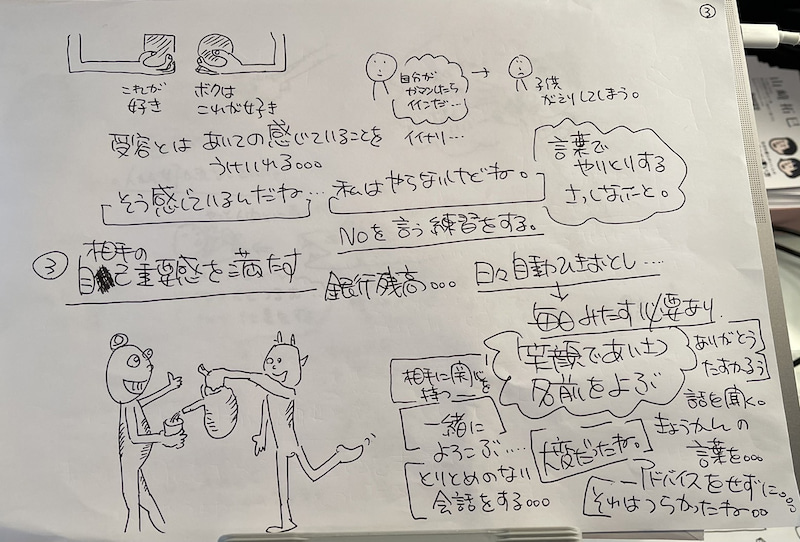 ③
これが
好き
ボクは
これが好き
自分が
ガマンしたら
イインだ…
→
子供
がえりしてしまう。
イイナリ…
受容とは あいての感じていることを
うけいれる。。。
そう感じているんだね…
私はやらないけどね。
言葉で
やりとりする
さっしなさいと。
NOを言う練習をする。
③ 相手の
自己重要感を満たす
銀行残高。。。
日々自動ひきおとし….
毎日みたす必要あり
笑顔であいさつ
名前をよぶ
ありがとう
たすかるう
相手に関心を
持つ
一緒に
よろこぶ….
とりとめのない
会話をする。。。
大変だったね。
話を聞く。
きょうかんの
言葉を。。。
アドバイスをせずに。。。
それはつらかったね。。
山﨑拓巳